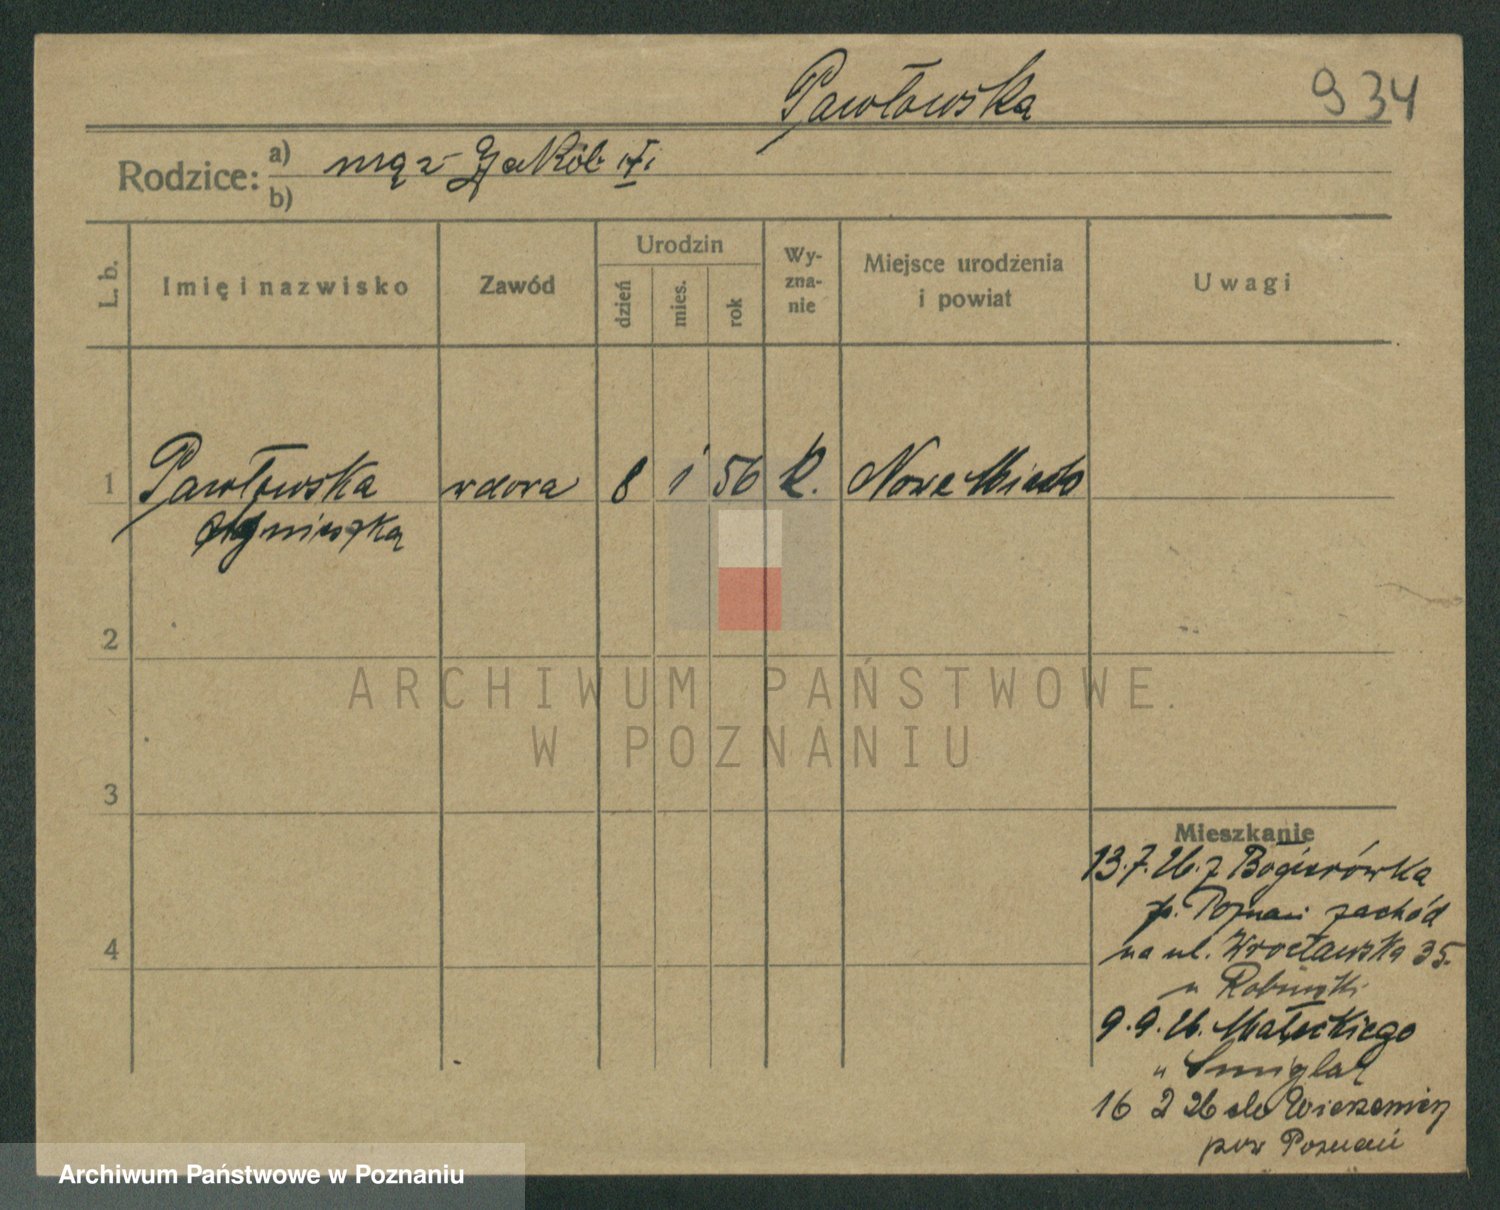 Pawłowska
934
Rodzice: a) mąż Jakób
b)
L. b.
Imię i nazwisko
Zawód
Urodzin
dzień
mies.
rok
Wy-
zna-
nie
Miejsce urodzenia
i powiat
Uwagi
1 Pawłowska wdowa 8 1 56 k. Nowe Miasto
Agnieszka
2
ARCHIWUM PAŃSTWOWE
W POZNANIU
3
Mieszkanie
13.7.26. z
p. Poznań zachód
4
na ul. Wrocławska 35.
u
9.9.26. Małeckiego
" Śmiglak
16 2 26 do
pow Poznań
Archiwum Państwowe w Poznaniu